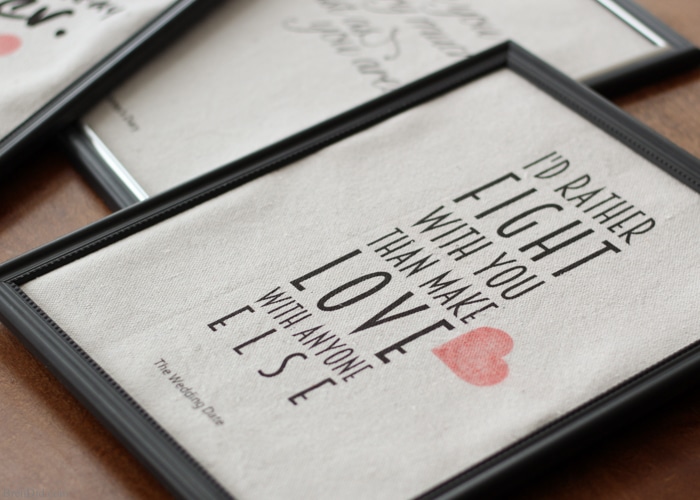 I'D RATHER
FIGHT
WITH YOU
THAN MAKE
LOVE
WITH ANYONE
ELSE
The Wedding Date
you are